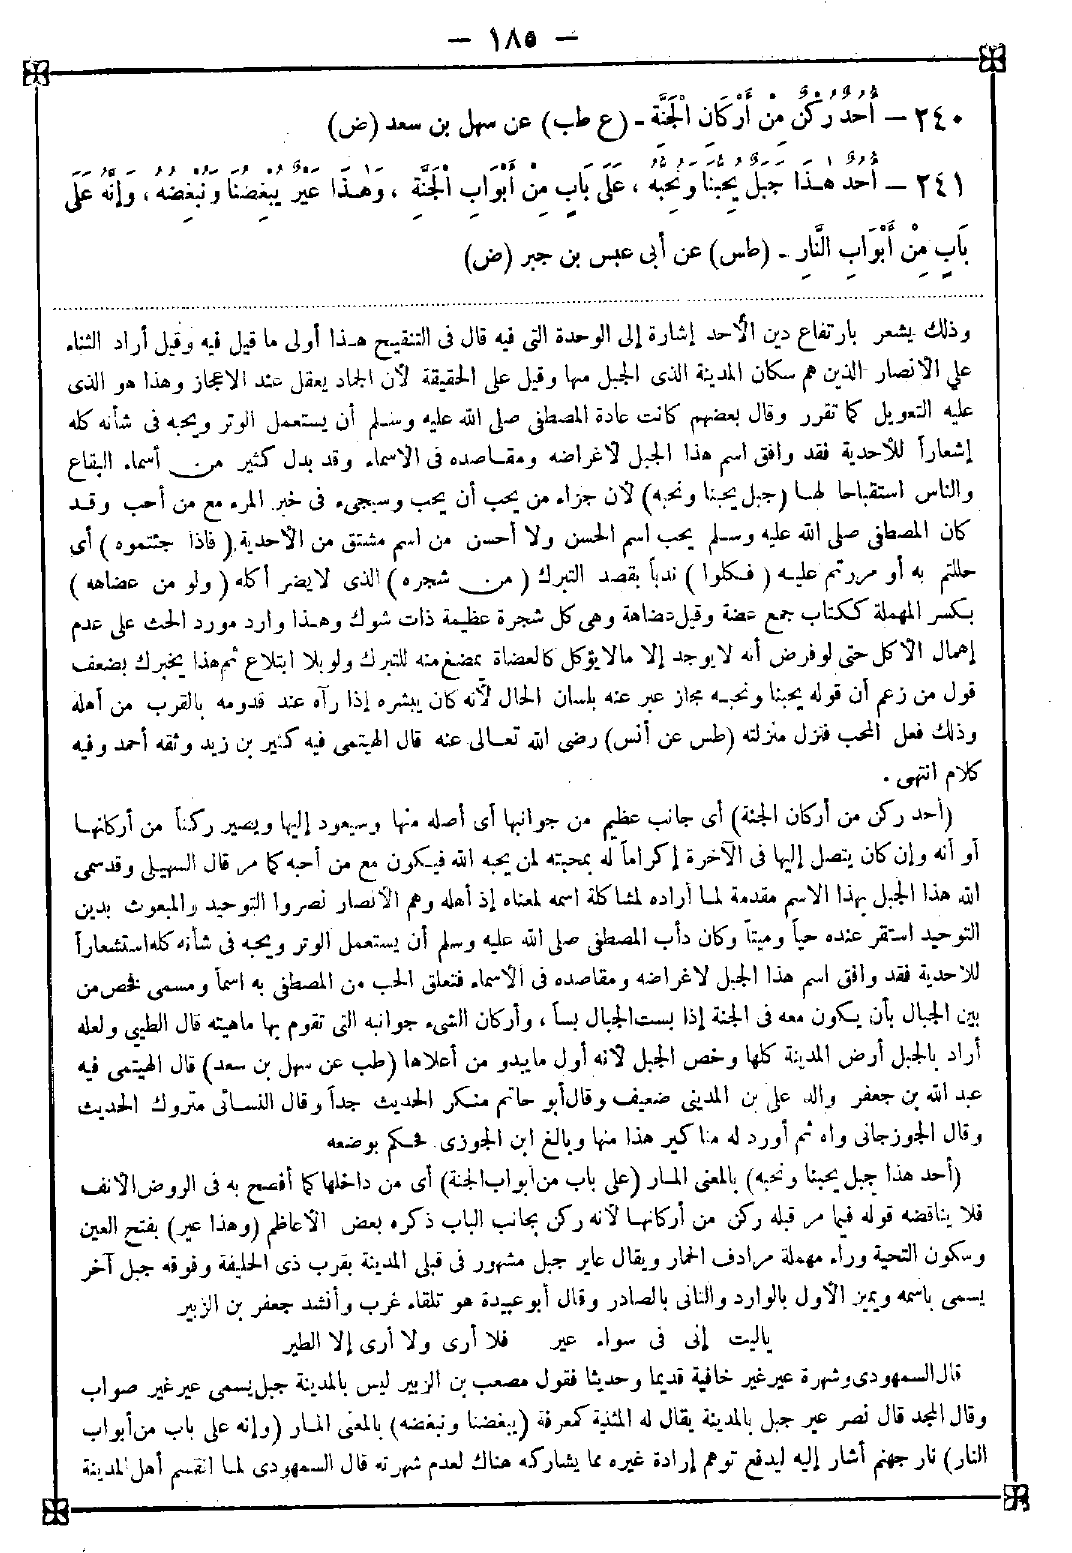 – ١٨٥ –
٢٤٠ – أُحُدٌ رُكْنٌ مِنْ أَرْكَانِ الْجَنَّةِ - (ع طب) عن سهل بن سعد (ض)
٢٤١ – أُحُدٌ هٰذَا جَبَلٌ يُحِبُّنَا وَنُحِبُّهُ، عَلَى بَابٍ مِنْ أَبْوَابِ الْجَنَّةِ، وَهٰذَا عَيْرٌ يُبْغِضُنَا وَنُبْغِضُهُ، وَإِنَّهُ عَلَى
بَابٍ مِنْ أَبْوَابِ النَّارِ - (طس) عن أبى عبس بن جبر (ض)
وذلك يشعر بارتفاع دين الأحد إشارة إلى الوحدة التى فيه قال فى التنقيح هذا أولى ما قيل فيه وقيل أراد الثناء
على الانصار الذين هم سكان المدينة الذى الجبل منها وقيل على الحقيقة لأن الجماد يعقل عند الاعجاز وهذا هو الذى
عليه التعويل كما تقرر وقال بعضهم كانت عادة المصطفى صلى الله عليه وسلم أن يستعمل الوتر ويحبه فى شأنه كله
إشعاراً للأحدية فقد وافق اسم هذا الجبل لاغراضه ومقاصده فى الاسماء وقد بدل كثير من أسماء البقاع
والناس استقباحا لها (جبل يحبنا ونحبه) لأن جزاء من يحب أن يحب وسيجىء فى خبر المرء مع من أحب وقد
كان المصطفى صلى الله عليه وسلم يحب اسم الحسن ولا أحسن من اسم مشتق من الأحدية (فاذا جئتموه) أى
حللتم به أو مررتم عليه (فكلوا) ندباً بقصد التبرك (من شجره) الذى لا يضر أكله (ولو من عضاهه)
بكسر المهملة ككتاب جمع عضة وقيل عضاهة وهى كل شجرة عظيمة ذات شوك وهذا وارد مورد الحث على عدم
إهمال الأكل حتى لو فرض أنه لا يوجد إلا مالا يؤكل كالعضاة يمضغ منه للتبرك ولو بلا ابتلاع ثم هذا يخبرك بضعف
قول من زعم أن قوله يحبنا ونحبه مجاز عبر عنه بلسان الحال لأنه كان يبشره إذا رآه عند قدومه بالقرب من أهله
وذلك فعل المحب فنزل منزلته (طس عن أنس) رضى الله تعالى عنه قال الهيتمى فيه كثير بن زيد وثقه أحمد وفيه
كلام انتهى .
(أحد ركن من أركان الجنة) أى جانب عظيم من جوانبها أى أصله منها وسيعود إليها ويصير ركناً من أركانها
أو أنه وإن كان يتصل إليها فى الآخرة إكراماً له بمحبته لمن يحبه الله فيكون مع من أحبه كما مر قال السهيلى وقد سمى
الله هذا الجبل بهذا الاسم مقدمة لما أراده لمشاكلة اسمه لمعناه إذ أهله وهم الأنصار نصروا التوحيد والمبعوث بدين
التوحيد استقر عنده حياً وميتاً وكان دأب المصطفى صلى الله عليه وسلم أن يستعمل الوتر ويحبه فى شأنه كله استشعاراً
للاحدية فقد وافق اسم هذا الجبل لاغراضه ومقاصده فى الأسماء فتعلق الحب من المصطفى به اسماً ومسمى فخص من
بين الجبال بأن يكون معه فى الجنة إذا بست الجبال بساً، وأركان الشىء جوانبه التى تقوم بها ماهيته قال الطيبى ولعله
أراد بالجبل أرض المدينة كلها وخص الجبل لأنه أول ما يبدو من أعلاها (طب عن سهل بن سعد) قال الهيتمى فيه
عبد الله بن جعفر والد على بن المدينى ضعيف وقال أبو حاتم منكر الحديث جداً وقال النسائى متروك الحديث
وقال الجوزجانى واه ثم أورد له مناكير هذا منها وبالغ ابن الجوزى فحكم بوضعه
(أحد هذا جبل يحبنا ونحبه) بالمعنى المار (على باب من أبواب الجنة) أى من داخلها كما أفصح به فى الروض الانف
فلا يناقضه قوله فيما مر قبله ركن من أركانها لأنه ركن بجانب الباب ذكره بعض الأعاظم (وهذا عير) بفتح العين
وسكون التحية وراء مهملة مرادف الحمار ويقال عاير جبل مشهور فى قبلى المدينة بقرب ذى الحليفة وفوقه جبل آخر
يسمى باسمه ويميز الأول بالوارد والثانى بالصادر وقال أبو عبيدة هو تلقاء غرب وأنشد جعفر بن الزبير
ياليت إنى فى سواء عير فلا أرى ولا أرى إلا الطير
قال السمهودى وشهرة عير غير خافية قديما وحديثا فقول مصعب بن الزبير ليس بالمدينة جبل يسمى عير غير صواب
وقال المجد قال نصر عير جبل بالمدينة يقال له المثنية كمعرفة (يبغضنا ونبغضه) بالمعنى المار (وإنه على باب من أبواب
النار) نار جهنم أشار إليه ليدفع توهم إرادة غيره مما يشاركه هناك لعدم شهرته قال السمهودى لما انقسم أهل المدينة